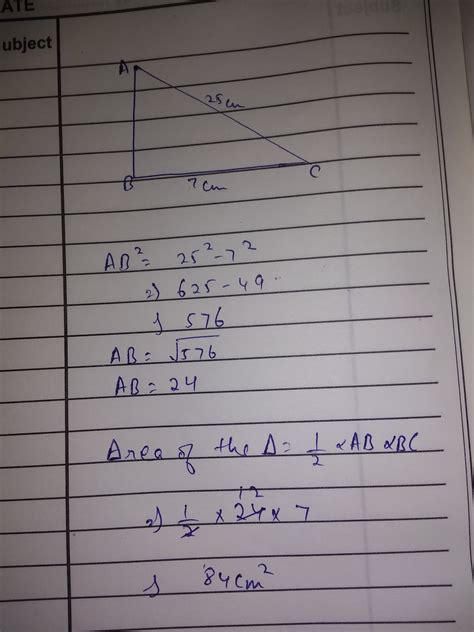 ATE
ubject
A
25cm
B
7cm
C
AB² = 25² - 7²
⇒ 625 - 49
⇒ 576
AB = √576
AB = 24
Area of the Δ = 1/2 × AB × BC
12
⇒ 1/2 × 24 × 7
⇒ 84cm²